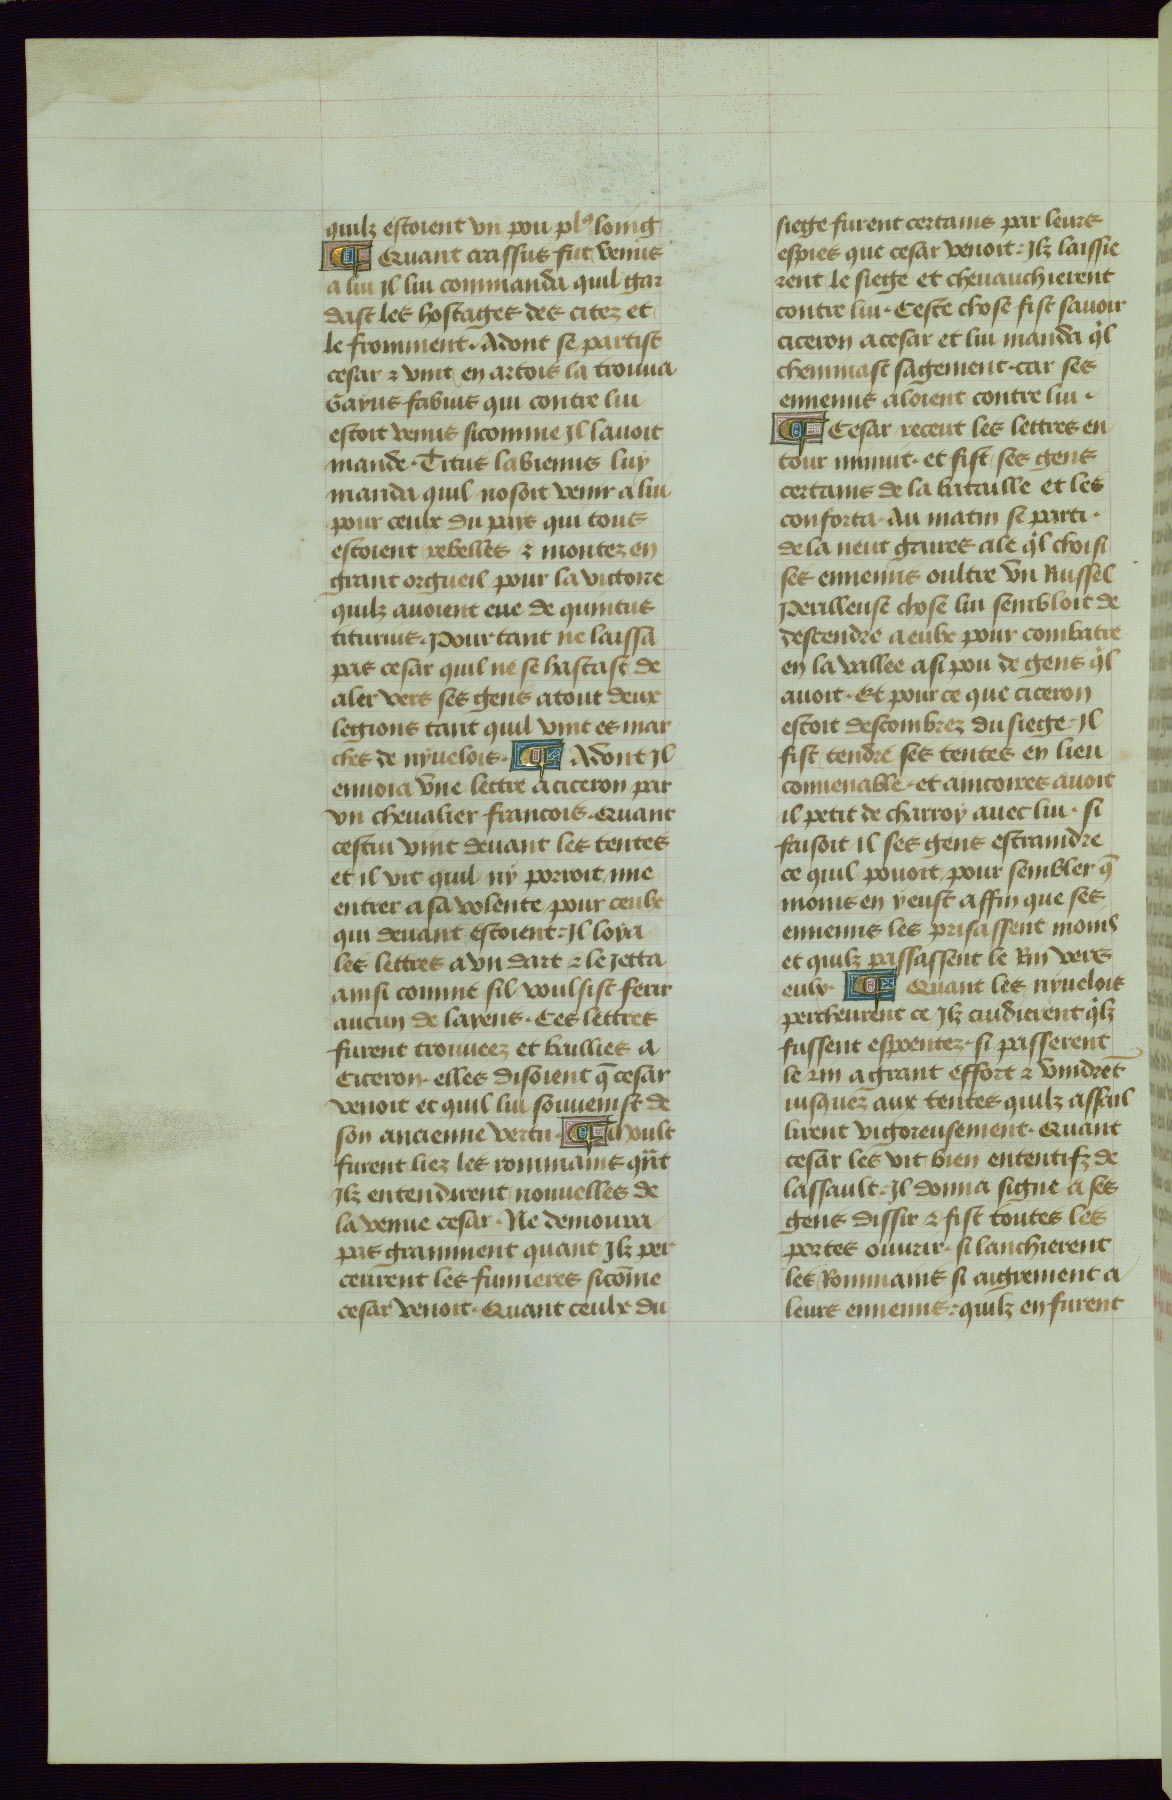 quilz estoient vn pou plꝰ loing
Quant crassus fut venus
a lui Il lui commanda quil gar
dast les hostages des citez et
le fromment. Adont se partist
cesar ⁊ vint en artois la trouua
Gayus fabius qui contre lui
estoit venus sicomme Il lauoit
mande. Titus labienus luy
manda quil nosoit venir a lui
pour ceulx du pays qui tous
estoient rebelles ⁊ montez en
grant orgueil pour la victoire
quilz auoient eue de quintus
titurius. Pour tant ne laissa
pas cesar quil ne se hastast de
aler vers ses gens atout deux
legions tant quil vint es mar
ches de nyuelois. Adont Il
enuoia vne lettre a ciceron par
vn cheualier francois. Quant
cestui vint deuant les tentes
et il vit quil ny porroit mie
entrer a sa volente pour ceulx
qui deuant estoient: Il loya
les lettres a vn dart ⁊ le Jetta
ainsi comme sil voulsist ferir
aucun de layens. Ces lettres
furent trouueez et baillies a
Ciceron. elles disoient q̄ cesar
venoit et quil lui souuenist de
son ancienne vertu. Moult
furent liez les rommains qũt
Ilz entendirent nouuelles de
la venue cesar. Ne demoura
pas gramment quant Ilz per
ceurent les fumieres sicõme
cesar venoit. Quant ceulx du
siege furent certains par leurs
espies que cesar venoit: Ilz laissie
rent le siege et cheuauchierent
contre lui. Ceste chose fist sauoir
ciceron a cesar et lui manda q̉l
cheminast sagement. car ses
ennemis aloient contre lui.
Cesar receut les lettres en
tour minuit. et fist ses gens
certains de la bataille et les
conforta. Au matin se parti.
de la neut gaires ale q̉l choisi
ses ennemis oultre vn Russel
Perilleuse chose lui sembloit de
descendre a eulx pour combatre
en la vallee a si pou de gens q̉l
auoit. Et pour ce que ciceron
estoit descombrez du siege: Il
fist tendre ses tentes en lieu
conuenable. et aincoires auoit
il petit de charroy auec lui. si
faisoit il ses gens estraindre
ce quil pouoit pour sembler q̄
moins en y eust affin que ses
ennemis les prisassent moins
et quilz passassent le Rin vers
eulx. Quant les nyuelois
percheurent ce Ilz cuidierent q̉lz
fussent espoentez. si passerent
le rin a grant effort ⁊ vindrēt
iusquez aux tentes quilz assail
lirent vigoreusement. Quant
cesar les vit bien ententifz de
lassault: Il donna signe a ses
gens dissir ⁊ fist toutes les
portes ouurir. si lanchierent
les Rommains si aigrement a
leurs ennemis: quilz en furent